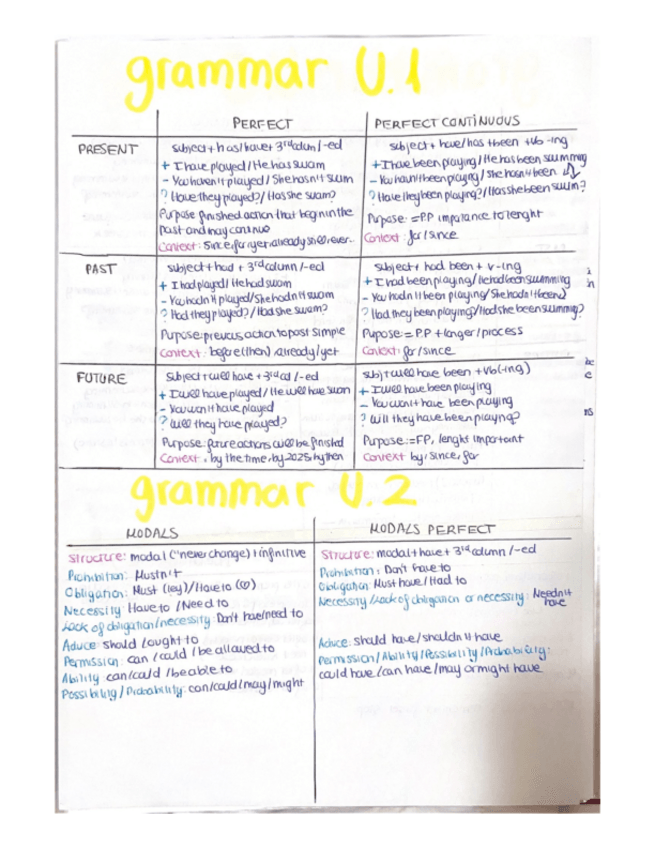 grammar U.1
PERFECT
PERFECT CONTINUOUS
PRESENT
subject + has/have + 3rd column/-ed
+ I have played / He has swam
- You haven't played / She hasn't swum
? Have they played? / Has she swam?
Purpose finished action that begin in the
past and may continue
Context: Since, for, yet, already, still, ever..
subject + have/has + been + vb -ing
+ I have been playing / He has been swimming
- You haven't been playing / She hasn't been
? Have they been playing? / Has she been swim?
Purpose: = PP importance to lenght
Context: for/since
PAST
subject + had + 3rd column/-ed
+ I had played / He had swam
- You hadn't played / She hadn't swam
? Had they played? / Has she swam?
Purpose: previous action to past simple
Context: before (then) already/yet
subject + had been + v-ing
+ I had been playing / He had been swimming
- You hadn't been playing / She hadn't (been)
? Had they been playing / Had she been swimming?
Purpose: = P.P + longer/process
Context: for/since
FUTURE
Subject + will have + 3rd col /-ed
+ I will have played / He will have swan
- You won't have played
? Will they have played?
Purpose: future actions will be finished
Context: by the time, by 2025, by then
subj + will have been + vb(-ing)
+ I will have been playing
- You won't have been playing
? Will they have been playing?
Purpose: = FP, lenght important
Context by, since, for
grammar U.2
MODALS
MODALS PERFECT
Structure: modal (*never change) + infinitive
Prohibition: Mustn't
Obligation: Must (ley) / Have to
Necessity: Have to / Need to
Lack of obligation/necessity: Don't have/need to
Advice: should / ought to
Permission: can / could / be allowed to
Ability: can/could / be able to
Possibility / Probability: can/could/may/might
Structure: modal + have + 3rd column /-ed
Prohibition: Don't have to
Obligation: Must have / Had to
Necessity / Lack of obligation or necessity: Needn't
have
Advice: should have / shouldn't have
Permission / Ability / Possibility / Probability:
could have / can have / may or might have